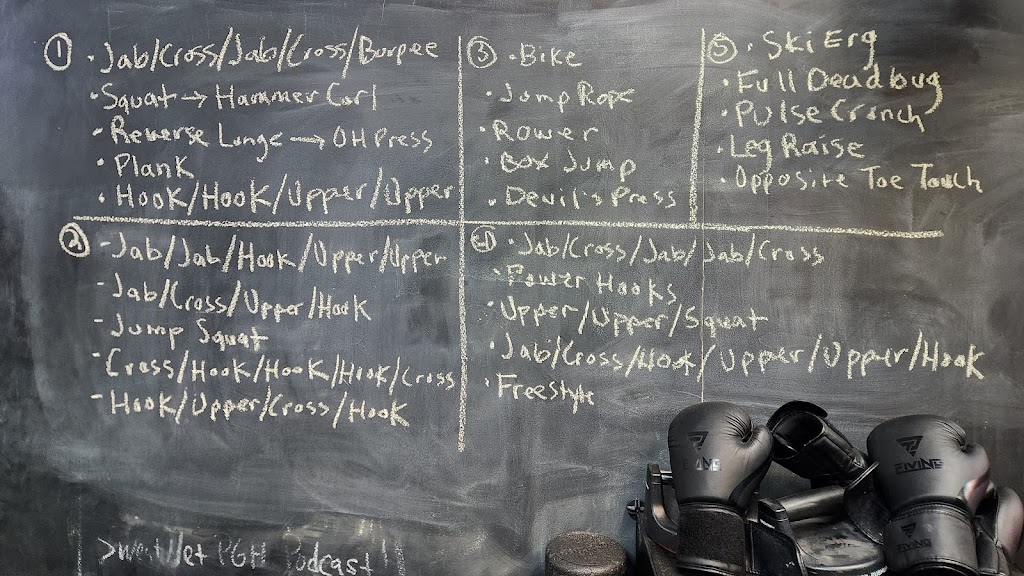 ① • Jab/Cross/Jab/Cross/Burpee
• Squat → Hammer Curl
• Reverse Lunge → OH Press
• Plank
• Hook/Hook/Upper/Upper
② - Jab/Jab/Hook/Upper/Upper
- Jab/Cross/Upper/Hook
- Jump Squat
- Cross/Hook/Hook/Hook/Cross
- Hook/Upper/Cross/Hook
③ • Bike
• Jump Rope
• Rower
• Box Jump
• Devil's Press
④ • Jab/Cross/Jab/Jab/Cross
• Power Hooks
• Upper/Upper/Squat
• Jab/Cross/Hook/Upper/Upper/Hook
• Freestyle
⑤ • Ski Erg
• Full Deadbug
• Pulse Crunch
• Leg Raise
• Opposite Toe Touch
PGH Podcast
FIVING
FIVING
FIVING